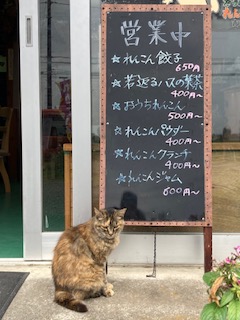 営業中
☆れんこん餃子
650円
☆若返るハスの葉茶
400円〜
☆手うちれんこん
500円〜
☆れんこんパウダー
400円〜
☆れんこんクランチ
400円〜
☆れんこんジャム
600円〜